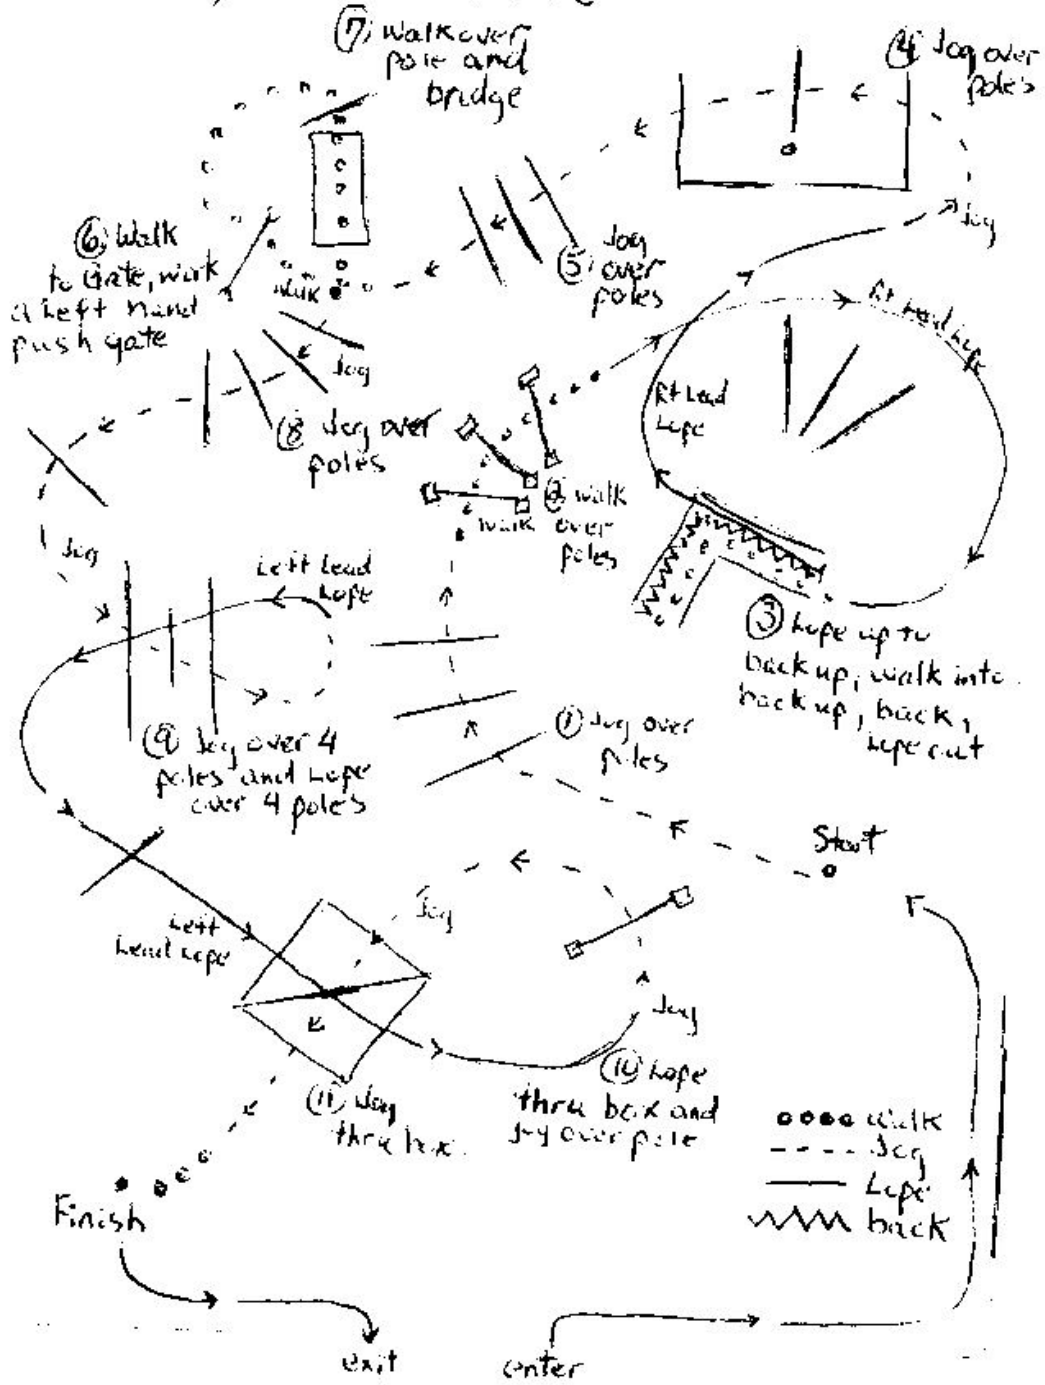 ⑦ Walk over
pole and
bridge
④ Jog over
poles
Jog
⑤ Jog
over
poles
⑥ Walk
to Gate, work
a Left Hand
push gate
Walk
Jog
Rt Lead Lope
Rt Lead
Lope
⑧ Jog over
poles
② Walk
over
poles
Walk
Jog
Left Lead
Lope
③ Lope up to
back up, walk into
back up, back,
Lope out
① Jog over
poles
⑨ Jog over 4
poles and Lope
over 4 poles
Start
Jog
Left
Lead Lope
Jog
⑩ Lope
thru box and
Jog over pole
⑪ Jog
thru box.
Walk
Jog
Lope
back
Finish
exit
enter